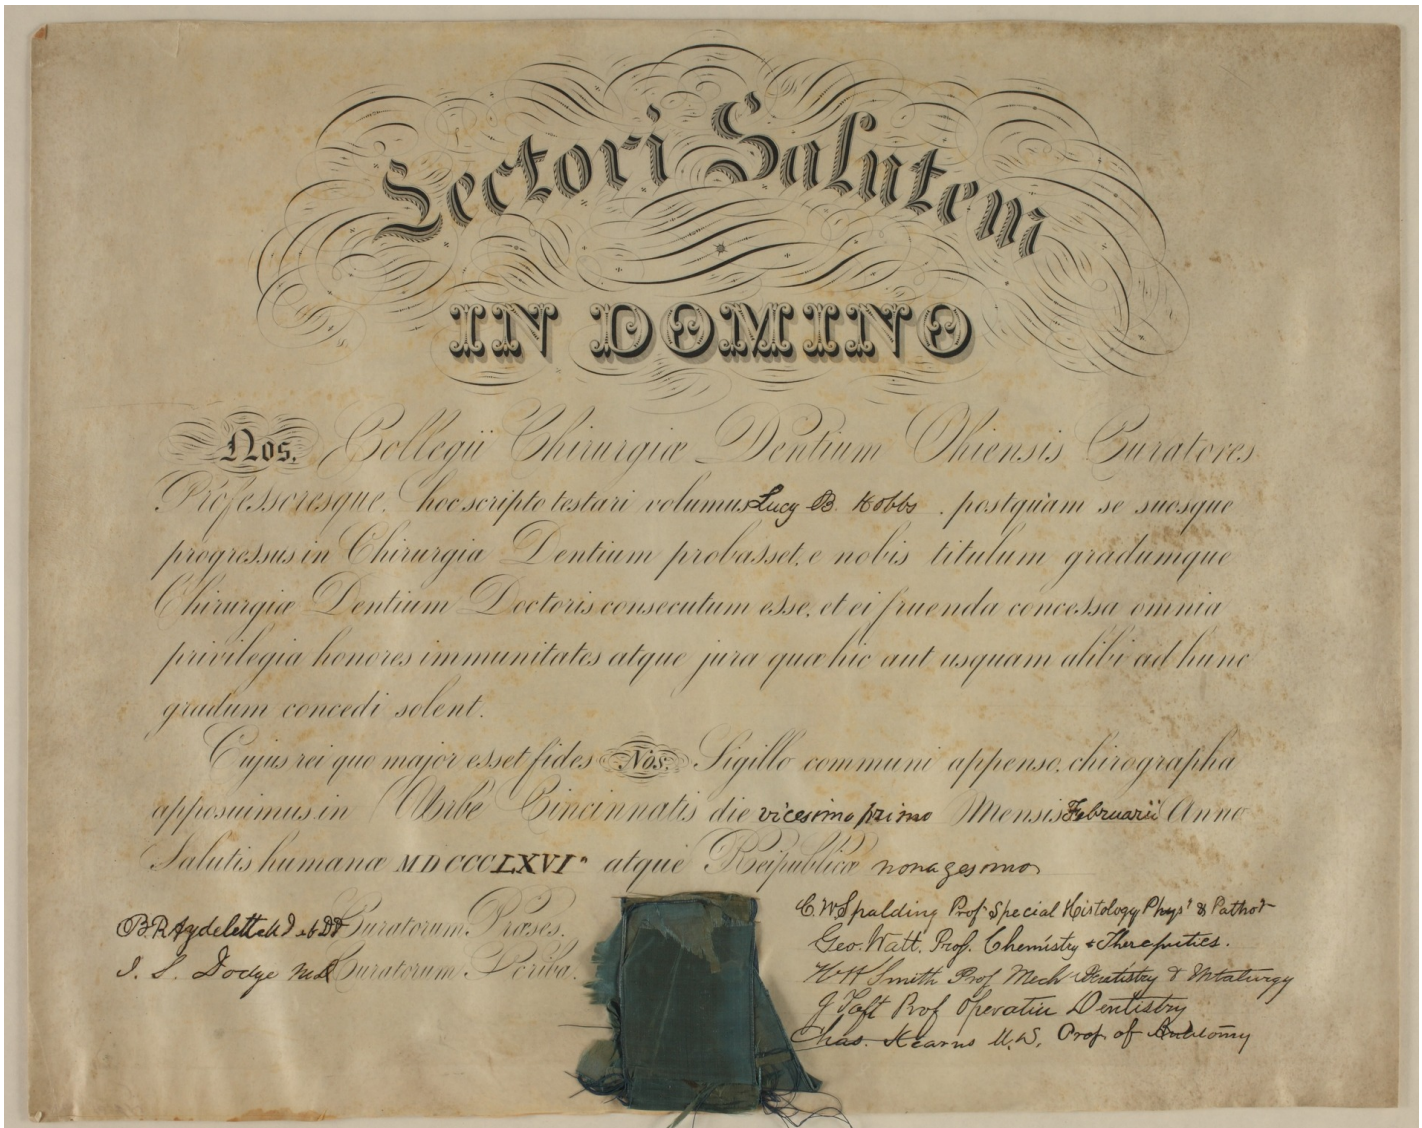 Lectori Salutem
IN DOMINO
Nos. Collegii Chirurgiæ Dentium Ohiensis Curatores
Professoresque, hoc scripto testari volumus Lucy B. Hobbs, postquam se suosque
progressus in Chirurgia Dentium probasset, e nobis titulum gradumque
Chirurgiæ Dentium Doctoris consecutum esse, et ei fruenda concessa omnia
privilegia honores immunitates atque jura quæ hic aut usquam alibi ad hunc
gradum concedi solent.
Cujus rei quo major esset fides Nos. Sigillo communi appenso, chirographa
apposuimus in Urbe Cincinnatis die vicesimo primo Mensis Februarii Anno
Salutis humanæ MDCCCLXVI" atque Reipublicæ nonagesimo
Curatorum Præses.
I. S. Dodge M.D. Curatorum Scriba.
C. W Spalding Prof. Special Histology Phys' & Pathol
Geo. Watt. Prof. Chemistry & Therapeutics.
W H Smith Prof Mech Dentistry & Metalurgy
J Taft Prof Operative Dentistry
Chas. Kearns M.D. Prof of Anatomy